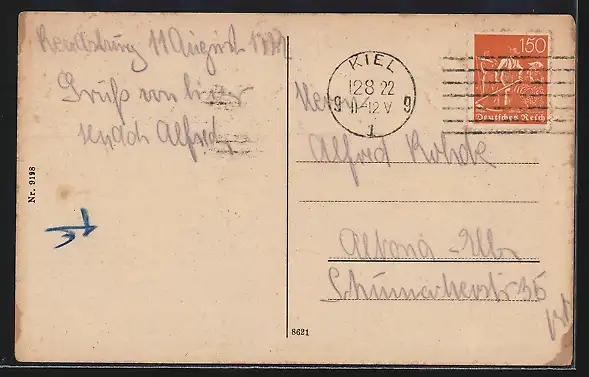 Rendsburg 11 August 1922
Gruß von hier
sendet Alfred
Nr. 9198
8621
KIEL
12 8 22
9 11-12 V 9
1
150
Deutsches Reich
Herrn
Alfred Rohde
Altona - Elbe
Schumacherstr 35